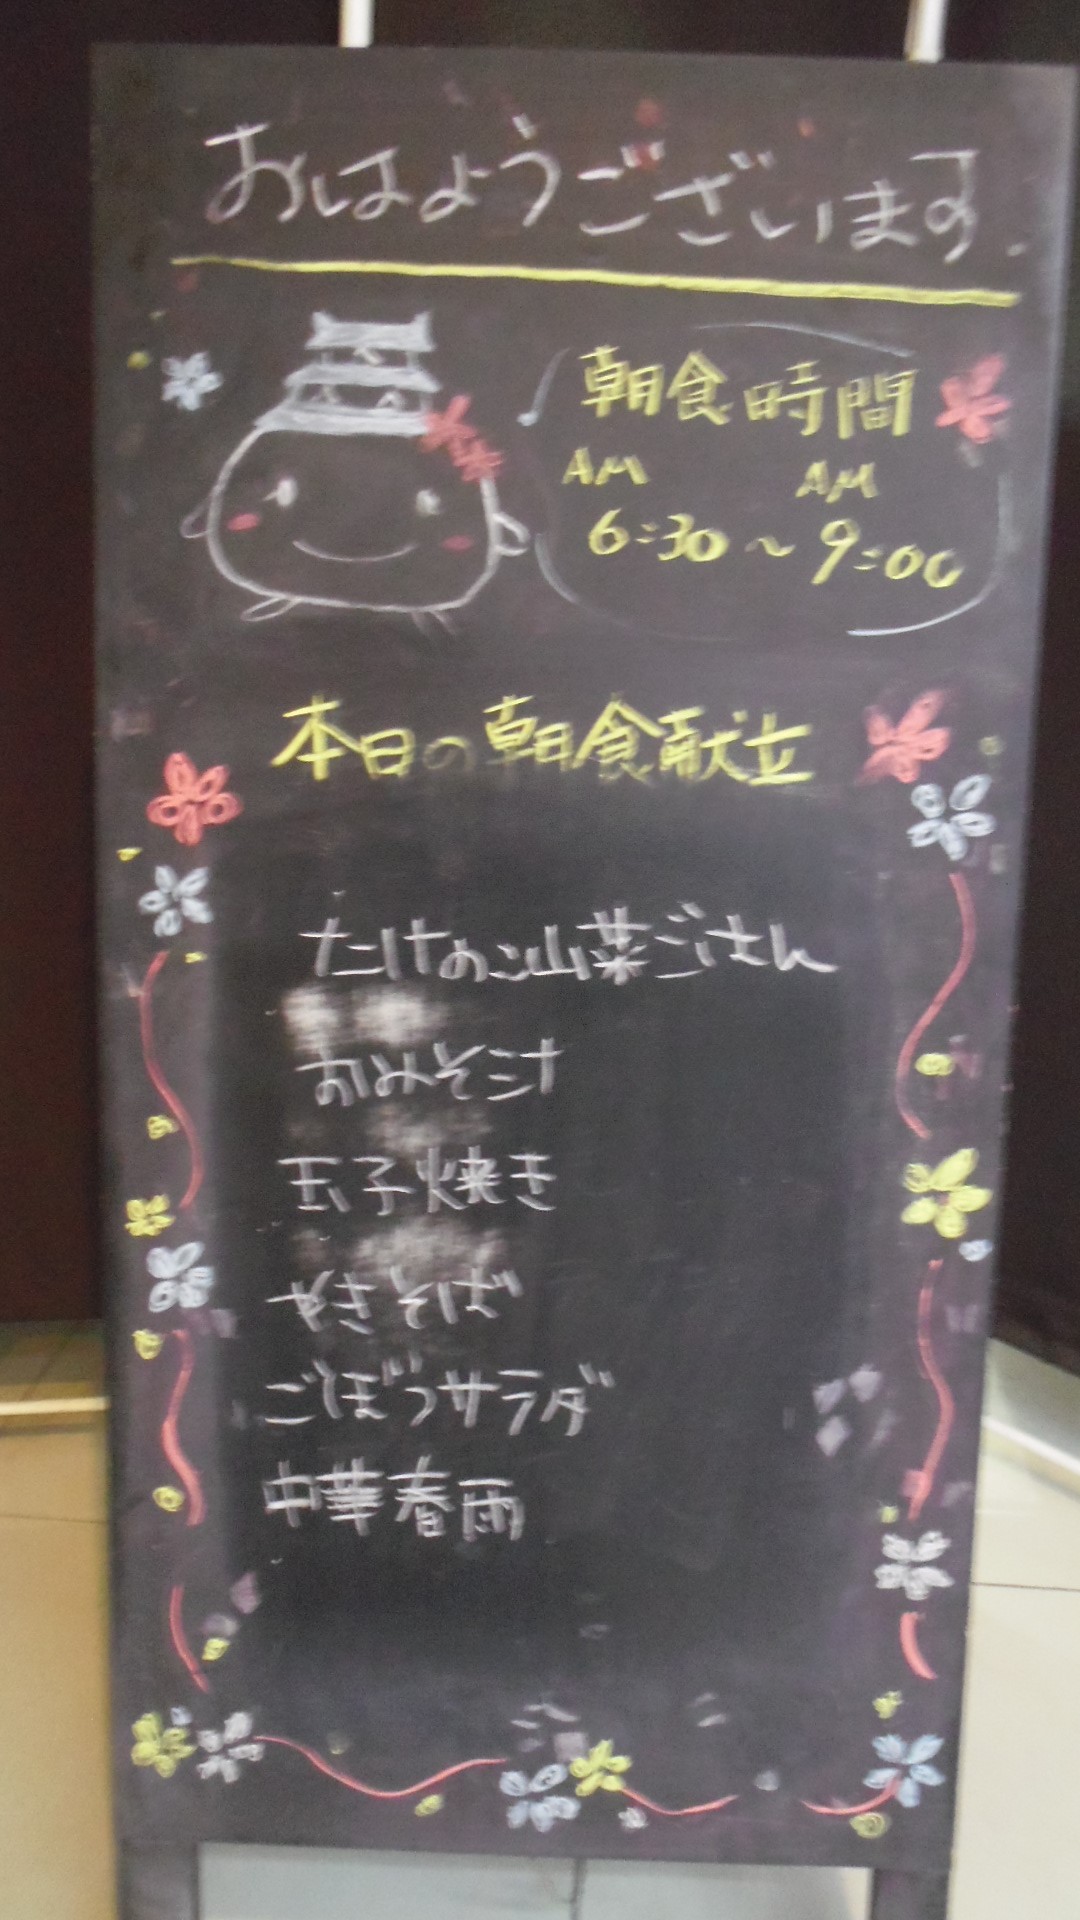 おはようございます.
朝食時間
AM AM
6:30~9:00
本日の朝食献立
たけのこ山菜ごはん
おみそ汁
玉子焼き
やきそば
ごぼうサラダ
中華春雨